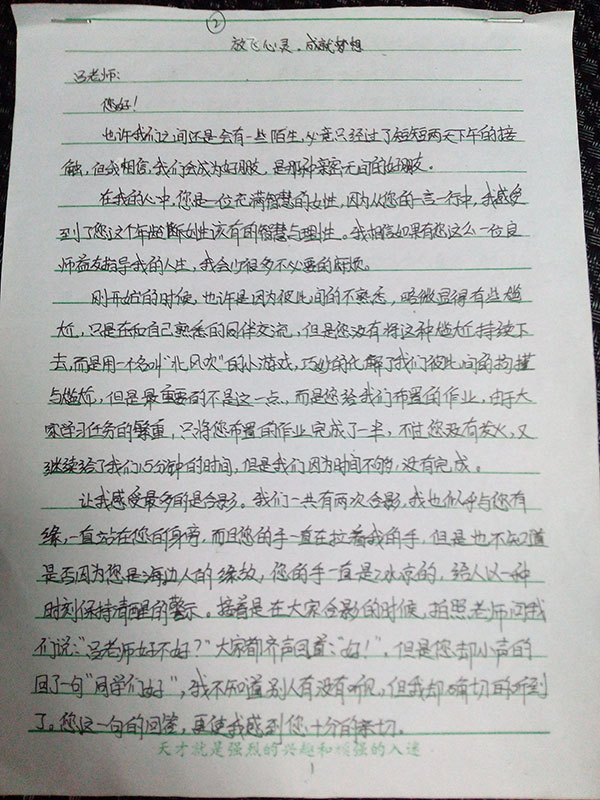 ②
放飞心灵，成就梦想
吕老师：
您好！
也许我们之间还是会有一些陌生，必竟只经过了短短两天下午的接
触，但我相信，我们会成为好朋友，是那种亲密无间的好朋友。
在我的心中，您是一位充满智慧的女性，因为从您的一言一行中，我感受
到了您这个年龄断女性该有的智慧与理性。我相信如果有您这么一位良
师益友指导我的人生，我会少很多不必要的麻烦。
刚开始的时候，也许是因为彼此间的不熟悉，略微显得有些尴
尬，只是在和自己熟悉的同伴交流，但是您没有将这种尴尬持续下
去，而是用一个名叫“北风吹”的小游戏，巧妙的化解了我们彼此间的拘谨
与尴尬，但是最重要的不是这一点，而是您给我们布置的作业，由于大
家学习任务的繁重，只将您布置的作业完成了一半，不过您没有发火，又
继续给了我们15分钟的时间，但是我们因为时间不够，没有完成。
让我感受最多的是合影。我们一共有两次合影，我也似乎与您有
缘，一直站在您的身旁，而且您的手一直在拉着我的手，但是也不知道
是否因为您是海边人的缘故，您的手一直是冰凉的，给人以一种
时刻保持清醒的警示。接着是在大家合影的时候，拍照老师问我
们说：“吕老师好不好？”大家都齐声回道：“好！”，但是您却小声的
回了一句“同学们好”，我不知道别人有没有听见，但我却确切的听到
了。您这一句的回答，更使我感到您十分的亲切。
天才就是强烈的兴趣和顽强的入迷
1